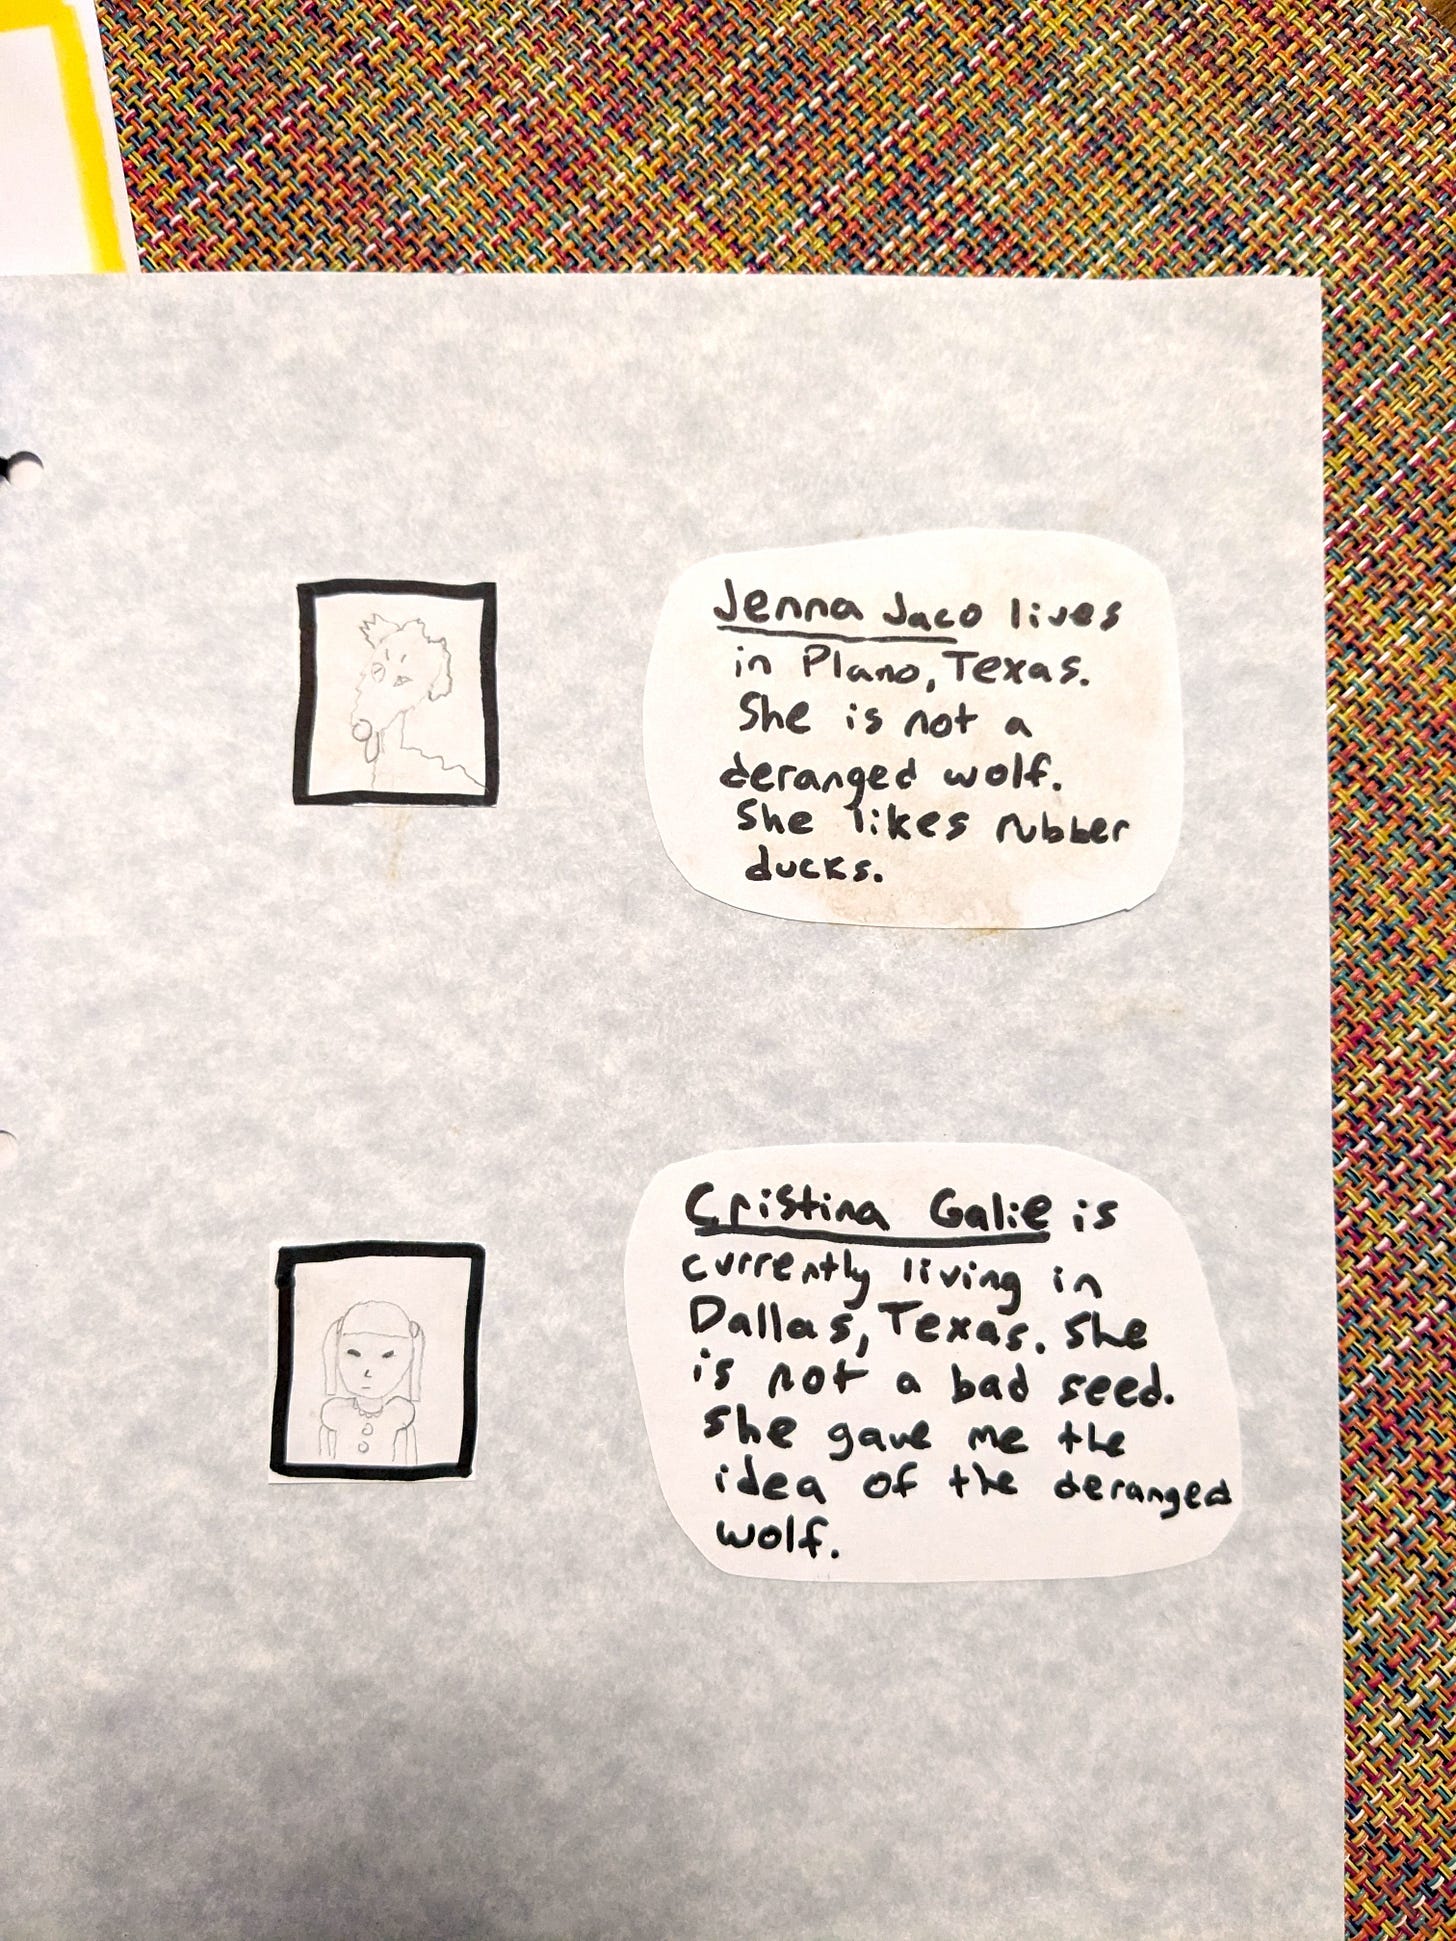 Jenna Jaco lives
in Plano, Texas.
She is not a
deranged wolf.
She likes rubber
ducks.
Cristina Galie is
currently living in
Dallas, Texas. She
is not a bad seed.
She gave me the
idea of the deranged
wolf.